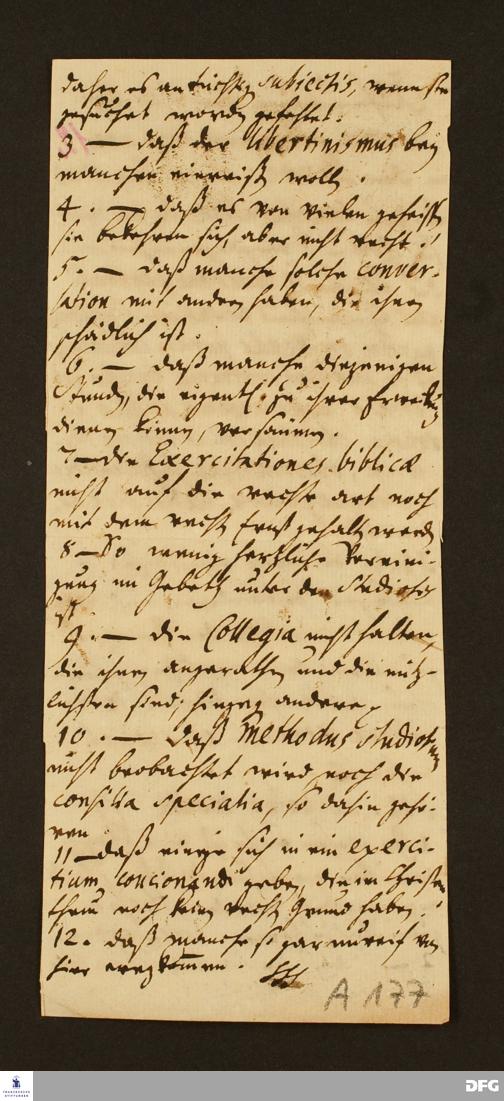 daher es an tüchtigen subiectis, wenn sie
gesuchet worden gefehlet.
3 — daß der libertinismus bey
manchen einreißen wolle.
4. — daß es von vielen geheißen
sie bekehren sich, aber nicht recht.
5. — daß manche solche conver-
sation mit andern haben, die ihnen
schädlich ist.
6. — daß manche diejenigen
Stunden, die eigentl. zu ihrer Erweckung
dienen können, versäumen.
7 — die Exercitationes biblicæ
nicht auf die rechte art noch
mit dem rechten Ernst gehalten werden
8 — So wenig hertzliche Vereini-
gung im Gebeth unter den Studiosis
ist
9. — die Collegia nicht halten,
die ihnen angerathen und die nütz-
lichsten sind; hingegen andere
10. — daß Methodus studiorum
nicht beobachtet wird, noch die
consilia specialia, so dahin gehö-
ren
11 — daß einige sich in ein exerci-
tium concionandi geben, die im Christen
thum noch keinen rechten Grund haben.
12. daß manche so gar unreif von
hier wegkommen.
A 177
FRANCKESCHE
STIFTUNGEN
DFG